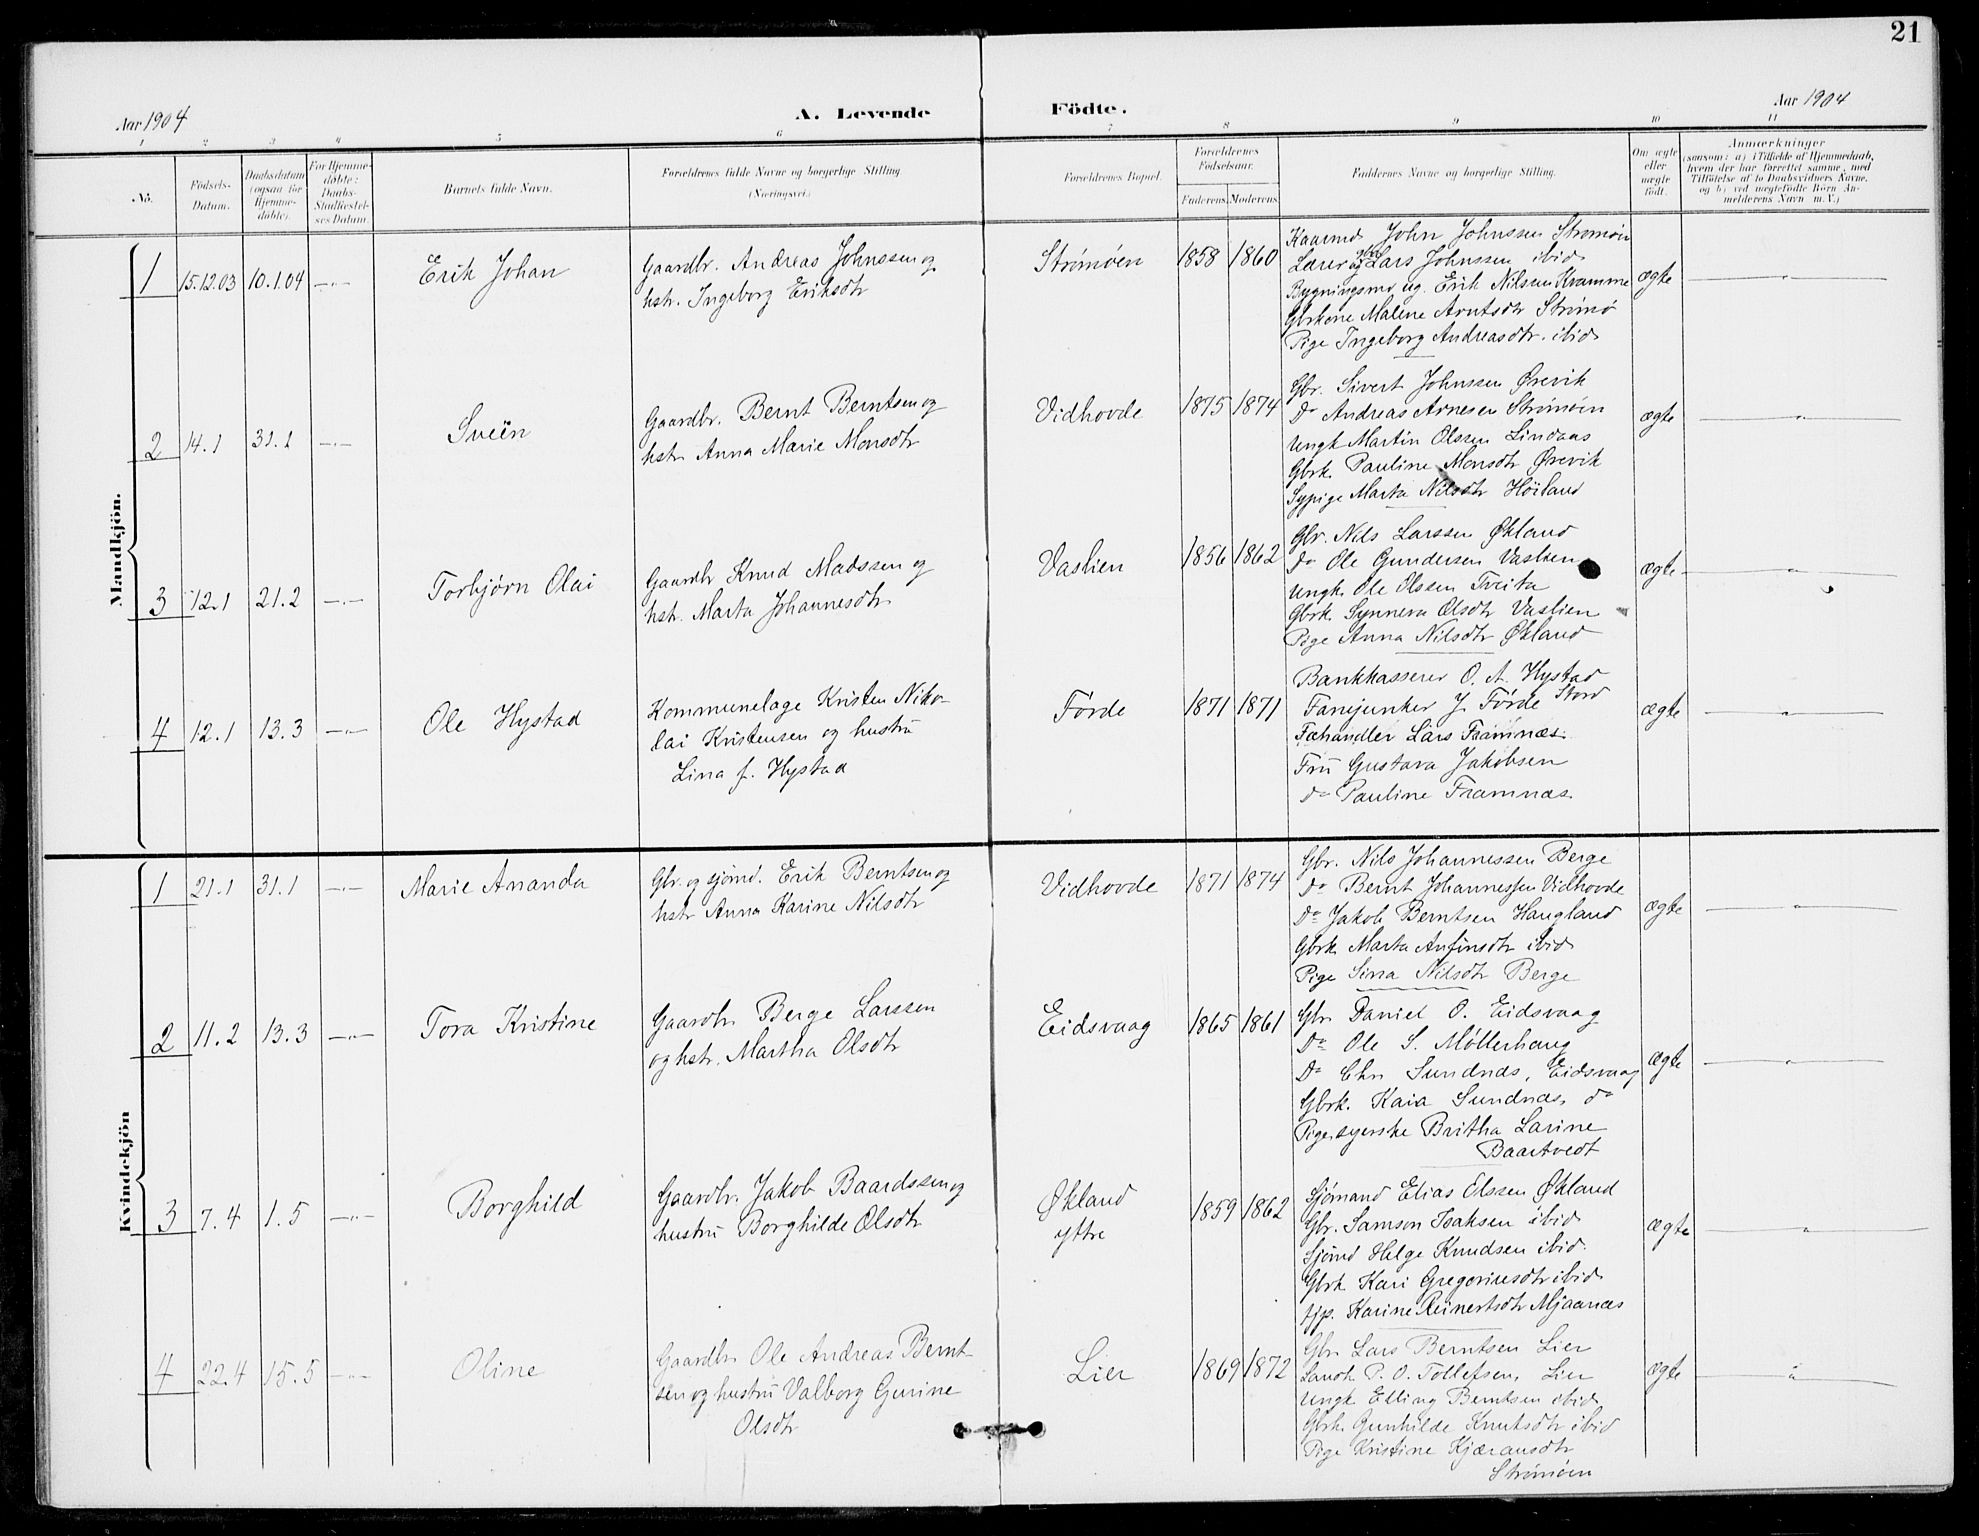 21
Aar 1904
A. Levende
Födte.
Aar 1904
1 2 3 4 5 6 7 8 9 10 11
No.
Födsels-
Datum.
Daabsdatum
(ogsaa for
Hjemme-
døbte).
For Hjemme-
døbte:
Daabs-
Stadfæstel-
ses Datum.
Barnets fulde Navn.
Forældrenes fulde Navne og borgerlige Stilling
(Næringsvei.)
Forældrenes Bopæl.
Forældrenes
Födselsaar.
Faderens. Moderens.
Faddernes Navne og borgerlige Stilling.
Om ægte
eller
uægte
født.
Anmærkninger
(saasom: a) i Tilfælde af Hjemmedaab,
hvem der har forrettet samme, med
Tilföielse af to Daabsvidners Navne,
og b) ved uægtefödte Börn An-
melderens Navn m.V.)
Mandkjön.
1
15.12.03
10.1.04
—"—
Erik Johan
Gaardbr. Andreas Johnssen og
hstr. Ingeborg Eriksdtr
Strömöen
1858
1860
Kaarmd John Johnssen Strømøen
Lærer og gbr Lars Johnssen ibid
Bygningsmd og. Erik Nilsen Kvamme
Gbrkone Malene Arntsdtr Strømø
Pige Ingeborg Andreasdtr. ibid
ægte
"
2
14.1
31.1
—"—
Svein
Gaardbr. Bernt Berntsen og
hstr Anna Marie Monsdtr
Vidhovde
1875
1874
Gbr. Sivert Johnssen Ørevik
Do Andreas Arnesen Strømøen
Ungk Martin Olssen Lindaas
Gbrk. Pauline Monsdtr Ørevik
Sypige Marta Nilsdtr Höiland
ægte
"
3
12.1
21.2
—"—
Torbjørn Olai
Gaardbr Knud Madssen og
hstr. Marta Johannesdtr
Vaslien
1856
1862
Gbr. Nils Larssen Økland
Do Ole Gundersen Vaslien
Ungk. Ole Olssen Tveita
Gbrk Synneva Olsdtr Vaslien
Pige Anna Nilsdtr Økland
ægte
"
4
12.1
13.3
—"—
Ole Hystad
Kommunelæge Kristen Niko-
lai Kristensen og hustru
Lina f. Hystad
Förde
1871
1871
Bankkasserer O. A. Hystad
Fanejunker J. Förde Stord
Fæhandler Lars Framnæs
Fru Gustava Jakobsen
do Pauline Framnæs
ægte
"
Kvindekjön
1
21.1
31.1
—"—
Marie Ananda
Gbr. og sjömd. Erik Berntsen og
hstr Anna Karine Nilsdtr
Vidhovde
1871
1874
Gbr. Nils Johannessen Berge
Do Bernt Johannessen Vidhovde
Do Jakob Berntsen Haugland
Gbrk Marta Anfinsdtr ibid
Pige Sina Nilsdtr Berge
ægte
"
2
11.2
13.3
—"—
Tora Kristine
Gaardbr Berge Larssen
og hstr. Martha Olsdtr
Eidsvaag
1865
1861
Gbr Daniel O. Eidsvaag
Do Ole S. Møllerhaug
Do Chr Sundnæs, Eidsvaag
Gbrk. Kaia Sundnæs, do
Pige, syerske Britha Larine
Baartvedt
ægte
"
3
7.4
1.5
—"—
Borghild
Gaardbr. Jakob Baardssen og
hustru Borghilde Olsdtr
Økland
yttre
1859
1862
Sjömand Elias Elssen Økland
Gbr. Samson Isaksen ibid
Sjömd Helge Knudsen ibid
Gbrk Kari Gregoriusdtr ibid
tjp. Karine Reinertsdtr Mjaanæs
ægte
"
4
22.4
15.5
—"—
Oline
Gaardbr Ole Andreas Bernt-
sen og hustru Valborg Gurine
Olsdtr
Lier
1869
1872
Gbr Lars Berntsen Lier
Landh. P. O. Tollefsen, Lier
Ungk Elling Berntsen ibid
Gbrk Gunhilde Knutsdtr ibid
Pige Kristine Kjæransdtr
Strömöen
ægte
"